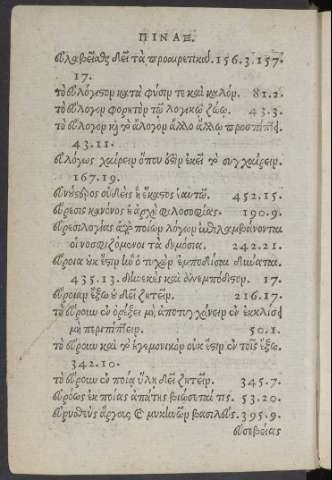 ΠΙΝΑΞ.
εὐλαβεῖσθς δεῖ τὰ προαιρετικά. 156.3. 157.
17.
τὸ εὐλόγιστον κατὰ φύσιν τε καὶ καλόν. 81.2.
τὸ εὔλογον φορητὸν τῷ λογικῷ ζώῳ. 43.3.
τὸ εὔλογον κỳ τὸ ἄλογον ἄλλο ἄλλῳ προσπίπτει
43.11.
εὐλόγως χαίρειν ὅπου ὅθεν ἐκεῖ τὸ συγχαίρειν.
167.19.
εὔνους οὐδεὶς ἢ ἕκαστος ἑαυτῷ. 452.15.
εὕρεσις κανόνος ἡ ἀρχὴ φιλοσοφίας. 190.9.
εὑρεσιλογίας ἀπὸ ποίων λόγων μεταλαμβάνονται
οἱ νοσφιζόμενοι τὰ δημόσια. 242.21.
εὔροια οὐκ ἔστιν ἣν ὁ τυχὼν ἐμποδίσαι δύναται.
435.13. διηνεκὲς καὶ ἀνεμπόδιστον. 17.
εὔροιαν ἔξω οὐ δεῖ ζητεῖν. 216.17.
τὸ εὔρουν ἐν ὀρέξει μὴ ἀποτυγχάνειν ἐν ἐκκλίσει
μὴ περιπίπτειν. 50.1.
τὸ εὔρουν καὶ τὸ ἡγεμονικὸν οὐκ ἔστιν ἐν τοῖς ἔξω.
342.10.
τὸ εὔρουν ἐν ποίᾳ ὕλῃ δεῖ ζητεῖν. 345.7.
εὐρόως ἐκ ποίας ἀπάτης βιώσεταί τις. 53.20.
εὐρυσθεὺς ἄργους & μυκηνῶν βασιλεύς. 395.9.
εὐσεβείας